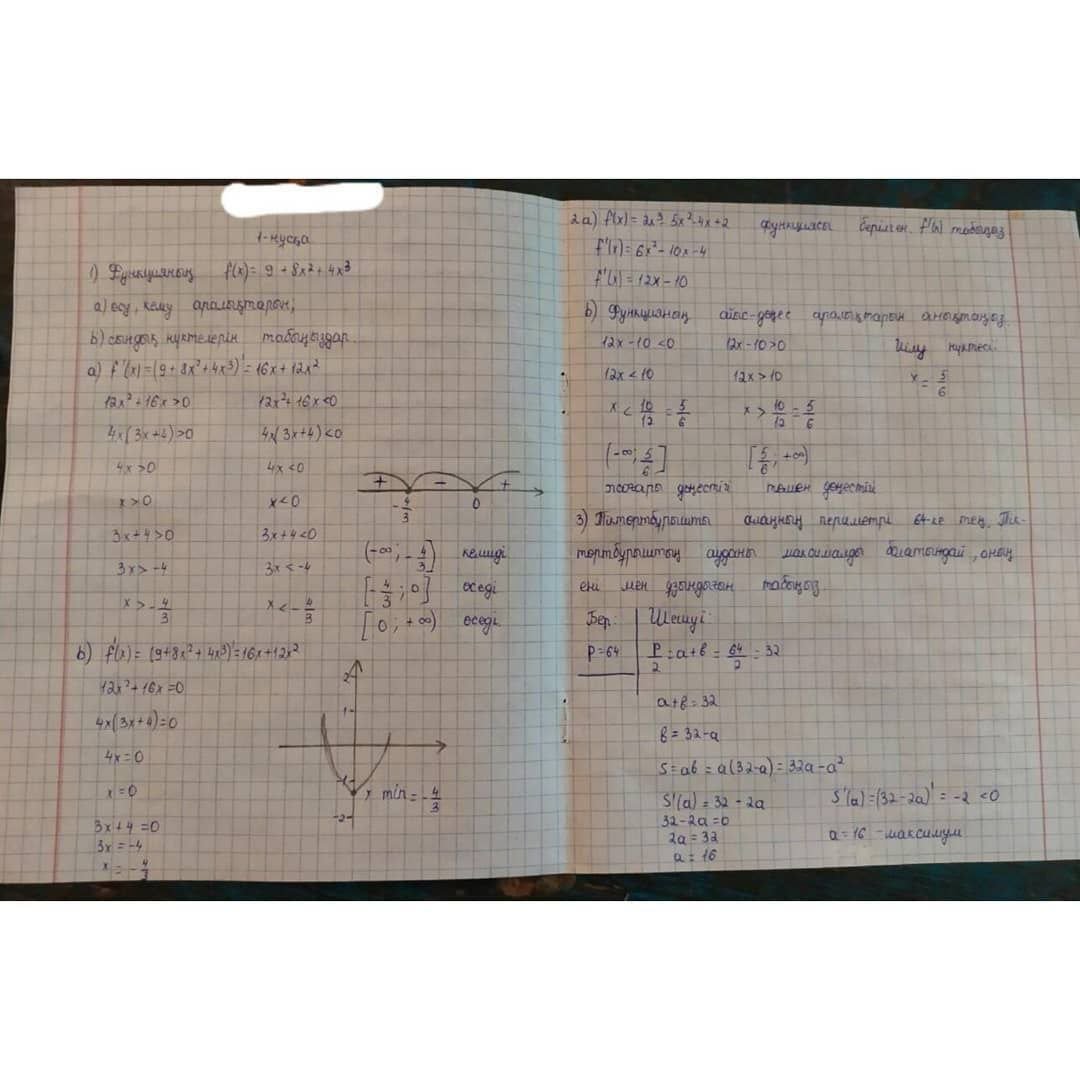 1-нұсқа
1) Функцияның f(x) = 9 + 8x² + 4x³
a) өсу, кему аралықтарын;
b) сындық нүктелерін табыңыздар.
a) f'(x) = (9 + 8x² + 4x³)' = 16x + 12x²
12x² + 16x > 0 12x² + 16x < 0
4x(3x+4) > 0 4x(3x+4) < 0
4x > 0 4x < 0
x > 0 x < 0
3x+4 > 0 3x+4 < 0
3x > -4 3x < -4
x > -4/3 x < -4/3
+ - +
-4/3 0
(-∞; -4/3) кемиді
[-4/3; 0] өседі
[0; +∞) өседі.
b) f'(x) = (9+8x²+4x³)' = 16x+12x²
12x² + 16x = 0
4x(3x+4) = 0
4x = 0
x = 0
3x+4 = 0
3x = -4
x = -4/3
2
1
-1
-2
x min = -4/3
2 a) f(x) = 2x³ - 5x² - 4x + 2 функциясы берілген. f'(x) табыңыз
f'(x) = 6x² - 10x - 4
f'(x) = 12x - 10
b) Функцияның ойыс-дөңес аралықтарын анықтаңыз.
12x - 10 < 0 12x - 10 > 0 Иілу нүктесі:
12x < 10 12x > 10 x = 5/6
x < 10/12 = 5/6 x > 10/12 = 5/6
(-∞; 5/6] [5/6; +∞)
жоғары дөңестігі төмен дөңестігі
3) Тіктөртбұрышты алаңның периметрі 64-ке тең. Тік-
төртбұрыштың ауданы максималды болатындай, оның
ені мен ұзындығын табыңыз.
Бер: Шешуі:
P = 64 P/2 = a + b = 64/2 = 32
a + b = 32
b = 32 - a
S = ab = a(32-a) = 32a - a²
S'(a) = 32 - 2a S'(a) = (32-2a)' = -2 < 0
32 - 2a = 0
2a = 32 a = 16 - максимум
a = 16